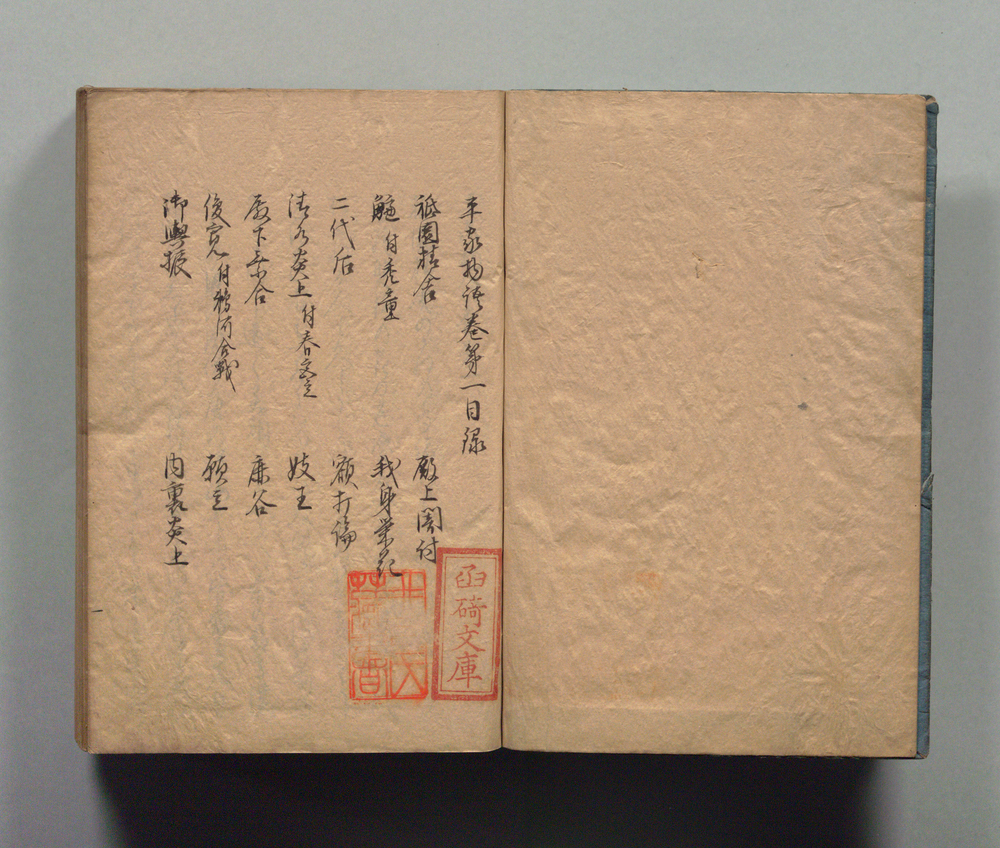 平家物語巻第一目録
祇園精舎 殿上闇付
鱸 付禿童 我身栄花
二代后 額打論
清水炎上 付春宮立 妓王
殿下乗合 鹿谷
俊寛 付鵜河合戦 願立
御輿振 内裏炎上
函碕文庫